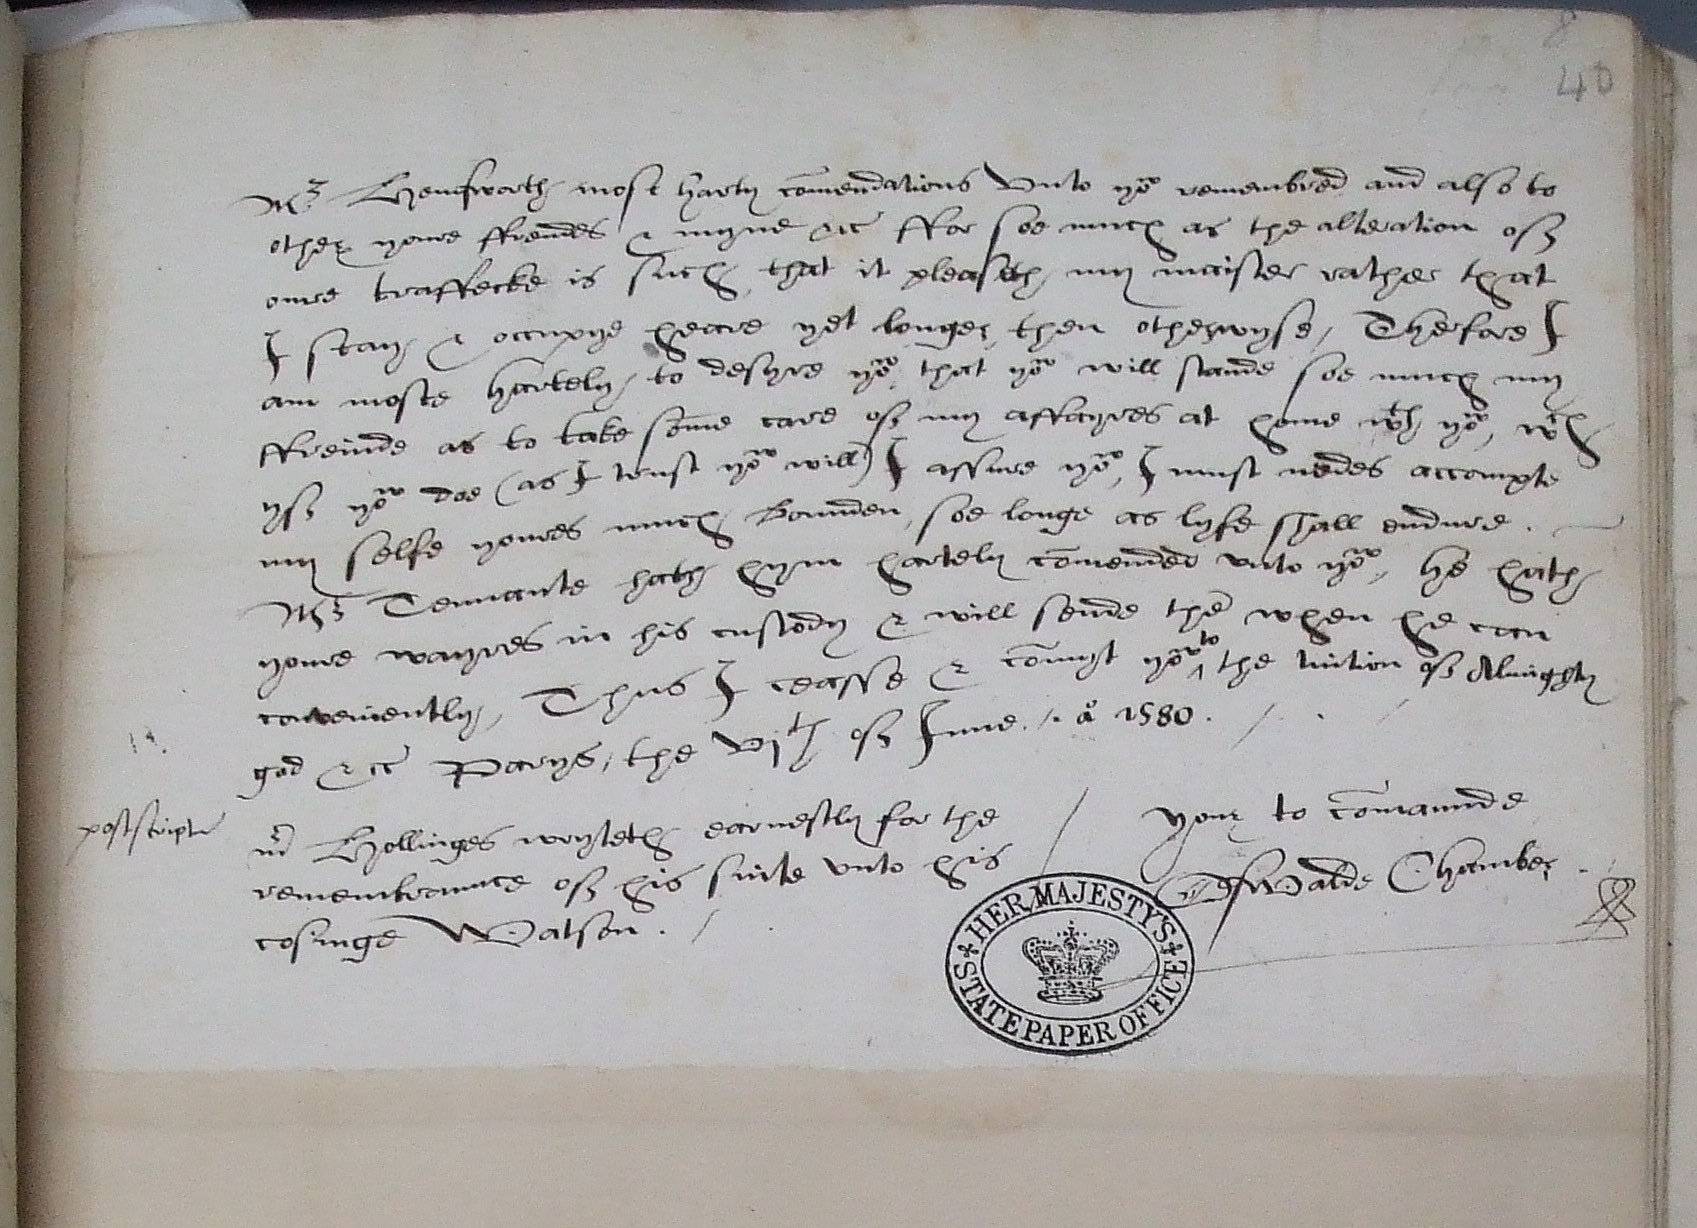 8
40
Mr Hemsworth most harty comendations Unto yor remembred and also to
other youre ffrendes & myne &c ffor soe much as the alteration off
oure traffecke is such, that it pleaseth my maister rather that
I stay & occupye heare yet longer then otherwyse, Therfore I
am moste hartely to desyre yor that yor will stande soe much my
ffreinde as to take some care off my affayres at home wth yor, wch
yff yor doe (as I trust yor will) I assure yor, I must nedes accompte
my selfe youres much bounden, soe longe as lyfe shall endure.
Mr Tennante hath hym hartely comended unto yor, he hath
youre wayres in his custody & will sende the when he can
conveniently, Thus I ceasse & comyt yor to the tuition off Almighty
god &c Parys, the vjth off June. ao 1580.
postscripte
mr Hollinges wryteth earnestly for the
remembraunce off his suite unto his
cosinge Watson.
your to comaunde
Edwarde Chamber
HER MAJESTY'S STATE PAPER OFFICE